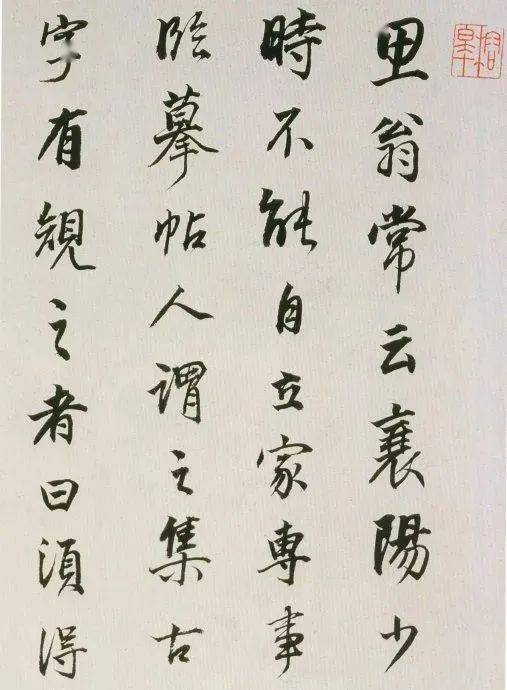 思翁常云襄陽少
時不能自立家専事
臨摹帖人謂之集古
字有覩之者曰須得